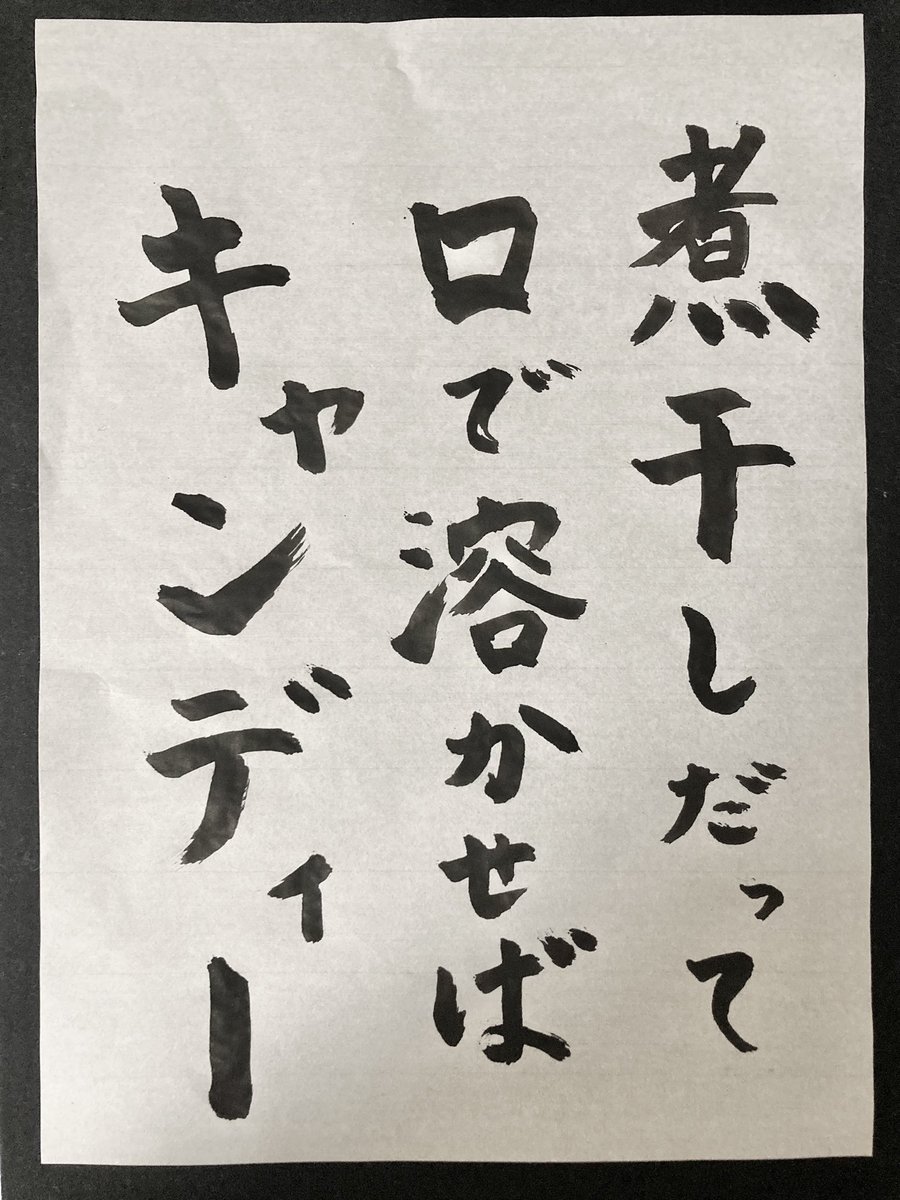 煮干しだって
口で溶かせば
キャンディー